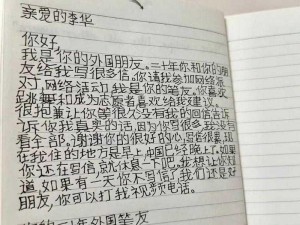 亲爱的李华
你好
我是你的外国朋友。三十年你和你的朋
友给我写很多信。你请我参加网络派
对,网络活动我是你的笔友。你喜欢
跳舞和成为志愿者喜欢给我建议。
很抱兼让你等很久没有我的回信告诉
诉你我真实的话因为你写很多,我没有
看全部。谢谢你的很好的心,写信很累,现
在我住的地方是早上,中国已经晚上了。如果
你还在写信,就休息一下吧。我想让你知
道,如果有一天你不写信了,我们还是好
朋友,你可以打我视频电话。
年外国笔友